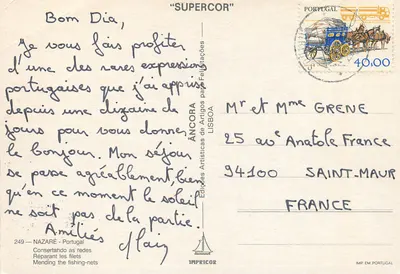 "SUPERCOR"
Bom Dia,
Je vous fais profiter
d'une des rares expressions
portugaises que j'ai apprises
depuis une dizaine de
jours pour vous donner
le bonjour. Mon séjour
se passe agréablement, bien
qu'en ce moment le soleil
ne soit pas de la partie.
Amitiés Alain
249 — NAZARÉ - Portugal
Consertando as redes
Réparant les filets
Mending the fishing-nets
ÂNCORA
Edições Artísticas de Artigos para Felicitações
LISBOA
IMPRICOR
PORTUGAL
40.00
Mr et Mme GRENE
25 ave Anatole France
94100 SAINT-MAUR
FRANCE
IMP. EM PORTUGAL